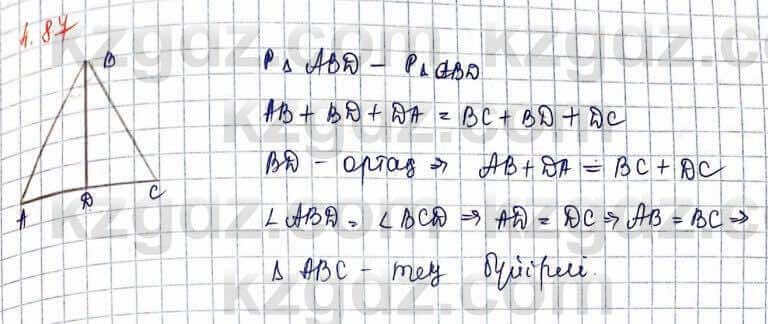 1.87
B
A
D
C
P△ ABD - P△ CBD
AB + BD + DA = BC + BD + DC
BD - ортақ ⇒ AB + DA = BC + DC
∠ABD = ∠BCD ⇒ AD = DC ⇒ AB = BC ⇒
△ ABC - тең бүйірлі.
kzgdz.com